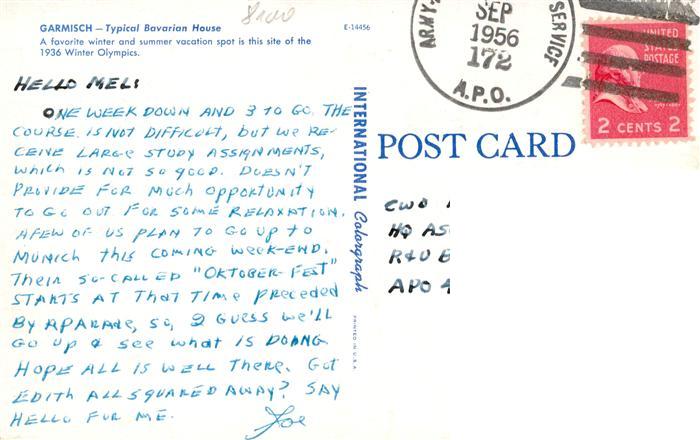 GARMISCH — Typical Bavarian House
E-14456
A favorite winter and summer vacation spot is this site of the
1936 Winter Olympics.
HELLO MEL:
ONE WEEK DOWN AND 3 TO GO. THE
COURSE IS NOT DIFFICULT, but WE RE-
CEIVE LARGE STUDY ASSIGNMENTS,
WHICH IS NOT SO GOOD. DOESN'T
PROVIDE FOR MUCH OPPORTUNITY
TO GO OUT FOR SOME RELAXATION.
A FEW OF US PLAN TO GO UP TO
MUNICH THIS COMING WEEK-END.
THEIR SO-CALLED "OKTOBER FEST"
STARTS AT THAT TIME PRECEDED
BY A PARADE, SO, I GUESS WE'LL
GO UP & SEE WHAT IS DOING
HOPE ALL IS WELL THERE. GOT
EDITH ALL SQUARED AWAY? SAY
HELLO FOR ME.
Joe
INTERNATIONAL Colorgraph
PRINTED IN U.S.A.
ARMY
SERVICE
SEP
1956
172
A.P.O.
UNITED
STATES
POSTAGE
2 CENTS 2
POST CARD
CWO
HQ AS
R&U E
APO 4